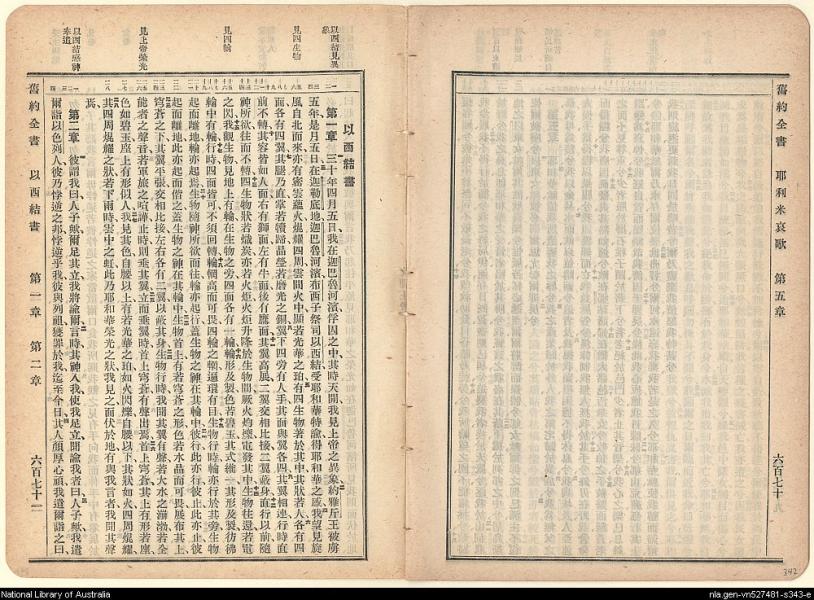 舊約全書 耶利米哀歌 第五章 六百七十
342
以西結見異象
見四生物
見四輪
見上帝榮光
以西結感神來適
以西結書
第一章 三十年四月五日我在迦巴魯河濱俘囚之中其時天開我見上帝之異象約雅斤王被虜
五年是月五日在迦勒底地迦巴魯河濱布西子祭司以西結受耶和華特諭得耶和華之感我望見旋
風自北而來亦有密雲蘊火焜耀四周雲間火中顯若光華之珀有四生物著於其中其狀若人各有四
面各有四翼其腿乃直掌若犢蹄晶瑩若磨光之銅翼下四旁有人手其面與翼各四其翼相連行時直
前不轉其容皆如人面右有獅面左有牛面後有鷹面其翼高展二翼交相比接二翼蔽身直行以前隨
神所欲往而不轉四生物狀若熾炭亦若火炬火升降於生物間厥火灼爍電發其中生物往還若電
之閃我觀生物見地上有輪在生物之旁四面各有一輪輪形及製色若碧玉其式維一其形及製彷彿
輪中有輪行時四面皆可不須回轉輪輞高而可畏四輪之輞遍環有目生物行時輪亦行於其旁生物
起而離地輪亦起焉生物隨神所欲而往輪亦起行蓋生物之神在其輪中彼行此亦行彼止此亦止彼
起而離地此亦起而偕之蓋生物之神在其輪中生物首上有若穹蒼之形色若水晶而可畏展布其上
穹蒼之下其翼平張交相比接左右各有二翼以蔽其身生物行時我聞其翼有聲若大水之湯渤若全
能者之聲音若軍旅之喧譁止時則垂其翼立而垂翼時首上穹蒼有聲出焉首上穹蒼其上有形若座
色如碧玉座上有形似人我見其色自腰以上有若光華之珀如火閃爍自腰以下其狀如火四周焜耀
其四周焜耀之狀若下雨時雲中之虹此乃耶和華榮光之狀我見之而伏於地有與我言者我聞其聲
焉
第二章 彼謂我曰人子歟爾足其立我將諭爾言時其神入我使我足立聞諭我者曰人子歟我遣
爾詣以色列人彼乃悖逆之邦悖逆乎我彼與列祖獲罪於我迄至今日其人顏厚心頑我遣爾詣之曰
舊約全書 以西結書 第一章 第二章 六百七十一
National Library of Australia
nla.gen-vn527481-s343-e